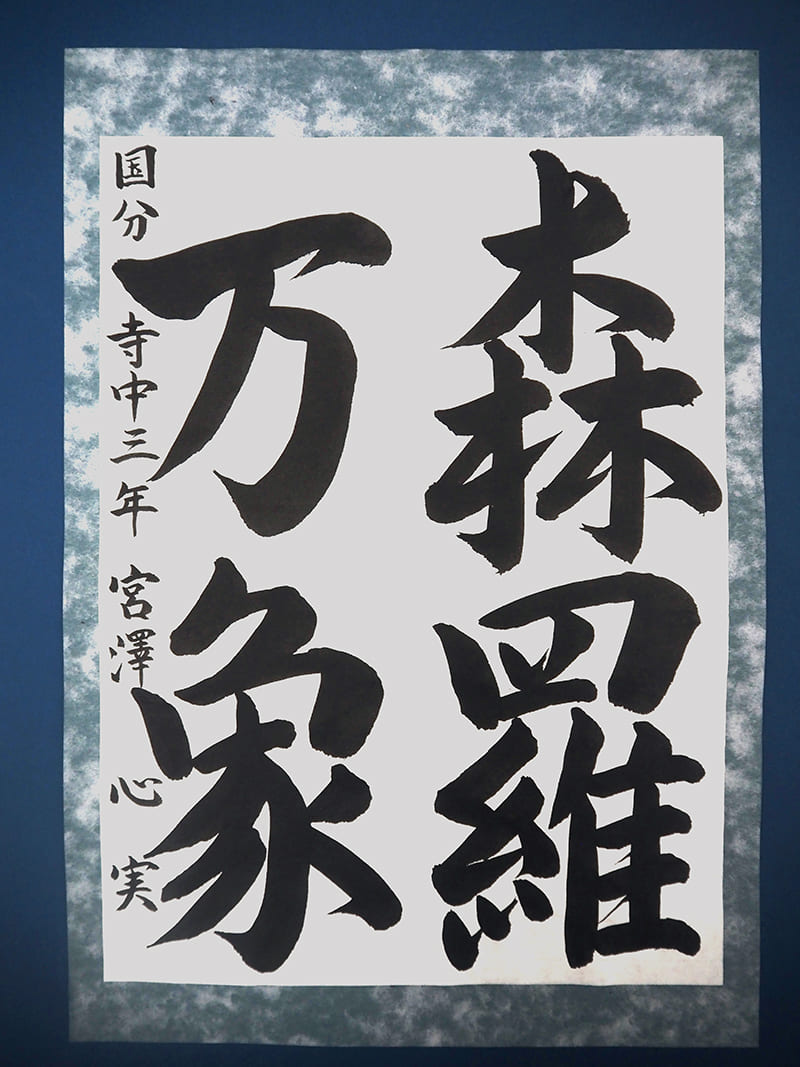 森羅
万象
国分寺中三年 宮澤心実